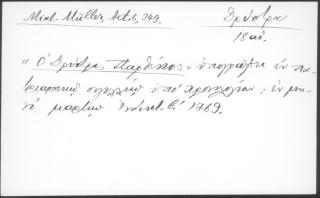 Mikl.-Müller, Act. 6, 349.
Δρύστρα
18 αἰ.
"Ὁ Δρύστρας Παρθένιος" ὑπογράφει ἐν πα-
τριαρχικῷ σιγιλλίῳ ὑπὸ χρονολογίαν: ἐν μη-
νὶ μαρτίῳ Ἰνδικτ. β΄ 1769.